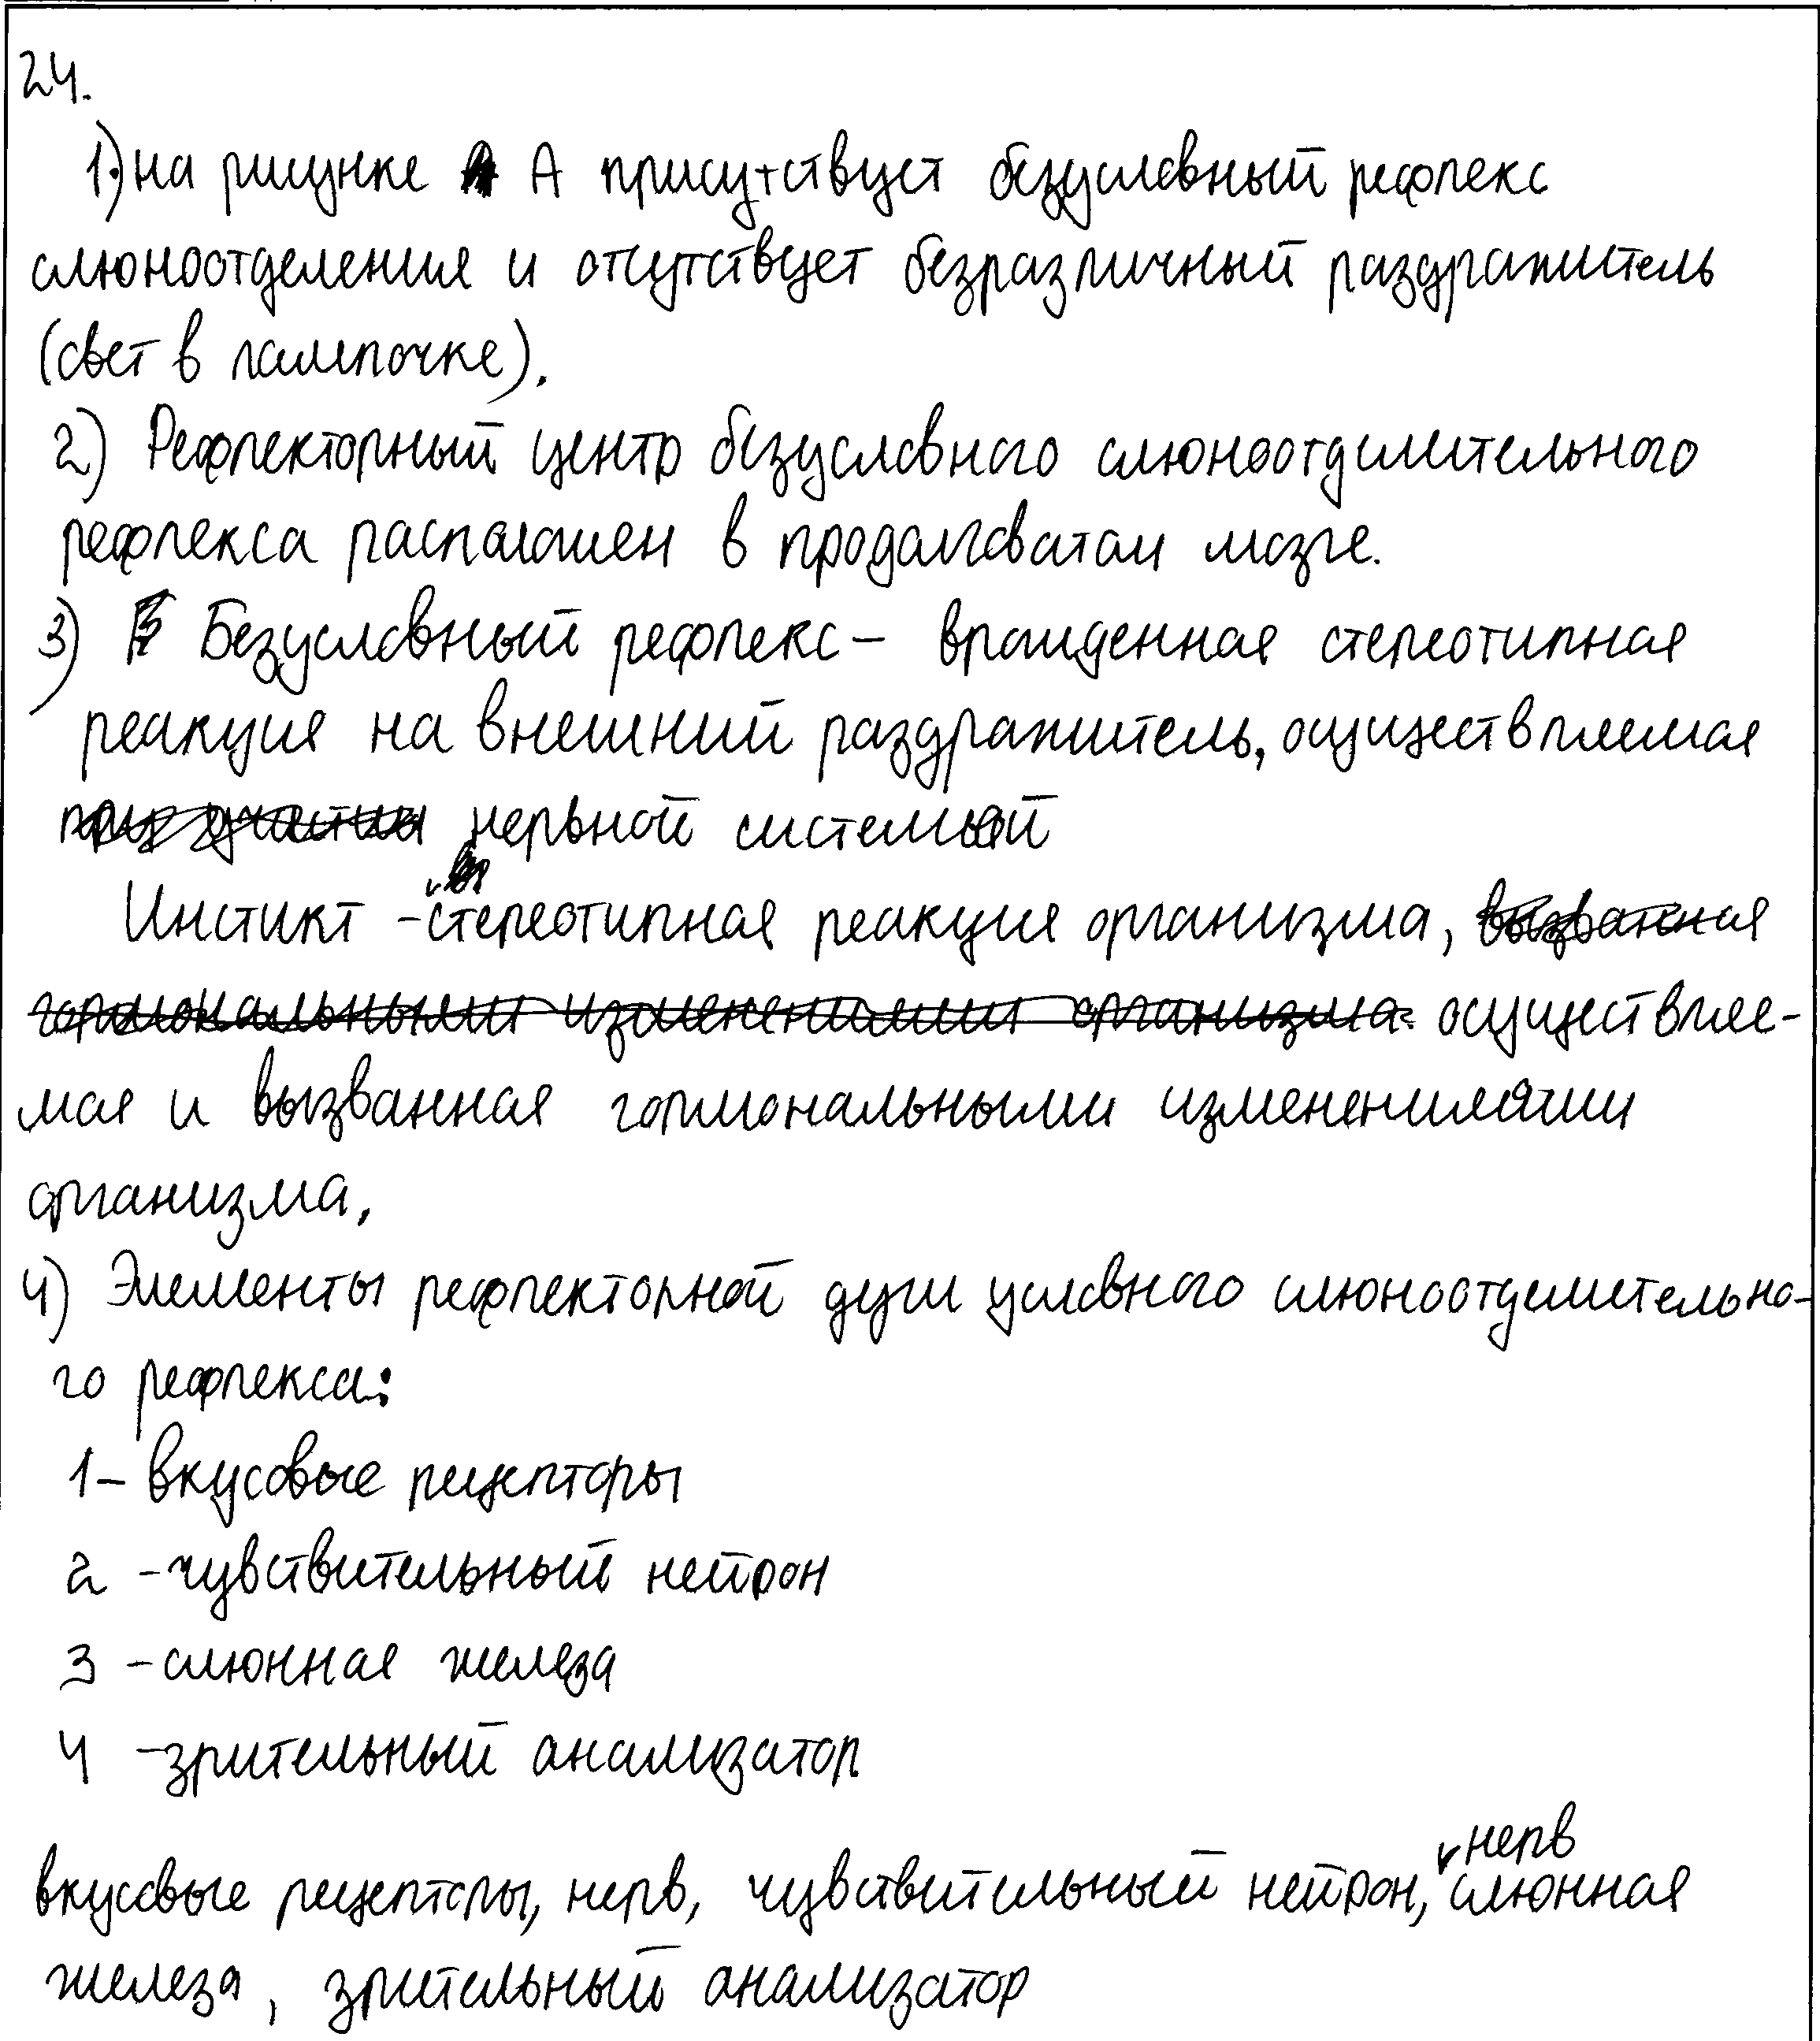 24.
1) на рисунке А присутствует безусловный рефлекс
слюноотделения и отсутствует безразличный раздражитель
(свет в лампочке).
2) Рефлекторный центр безусловного слюноотделительного
рефлекса расположен в продолговатом мозге.
3) Безусловный рефлекс – врожденная стереотипная
реакция на внешний раздражитель, осуществляемая
при участии нервной системой
Инстикт – стереотипная реакция организма, вызванная
гормональными изменениями организма. осуществляе-
мая и вызванная гормональными изменениями
организма,
4) Элементы рефлекторной дуги условного слюноотделительно-
го рефлекса:
1 – вкусовые рецепторы
2 – чувствительный нейрон
3 – слюнная железа
4 – зрительный анализатор
нерв
вкусовые рецепторы, нерв, чувствительный нейрон, слюнная
железа, зрительный анализатор